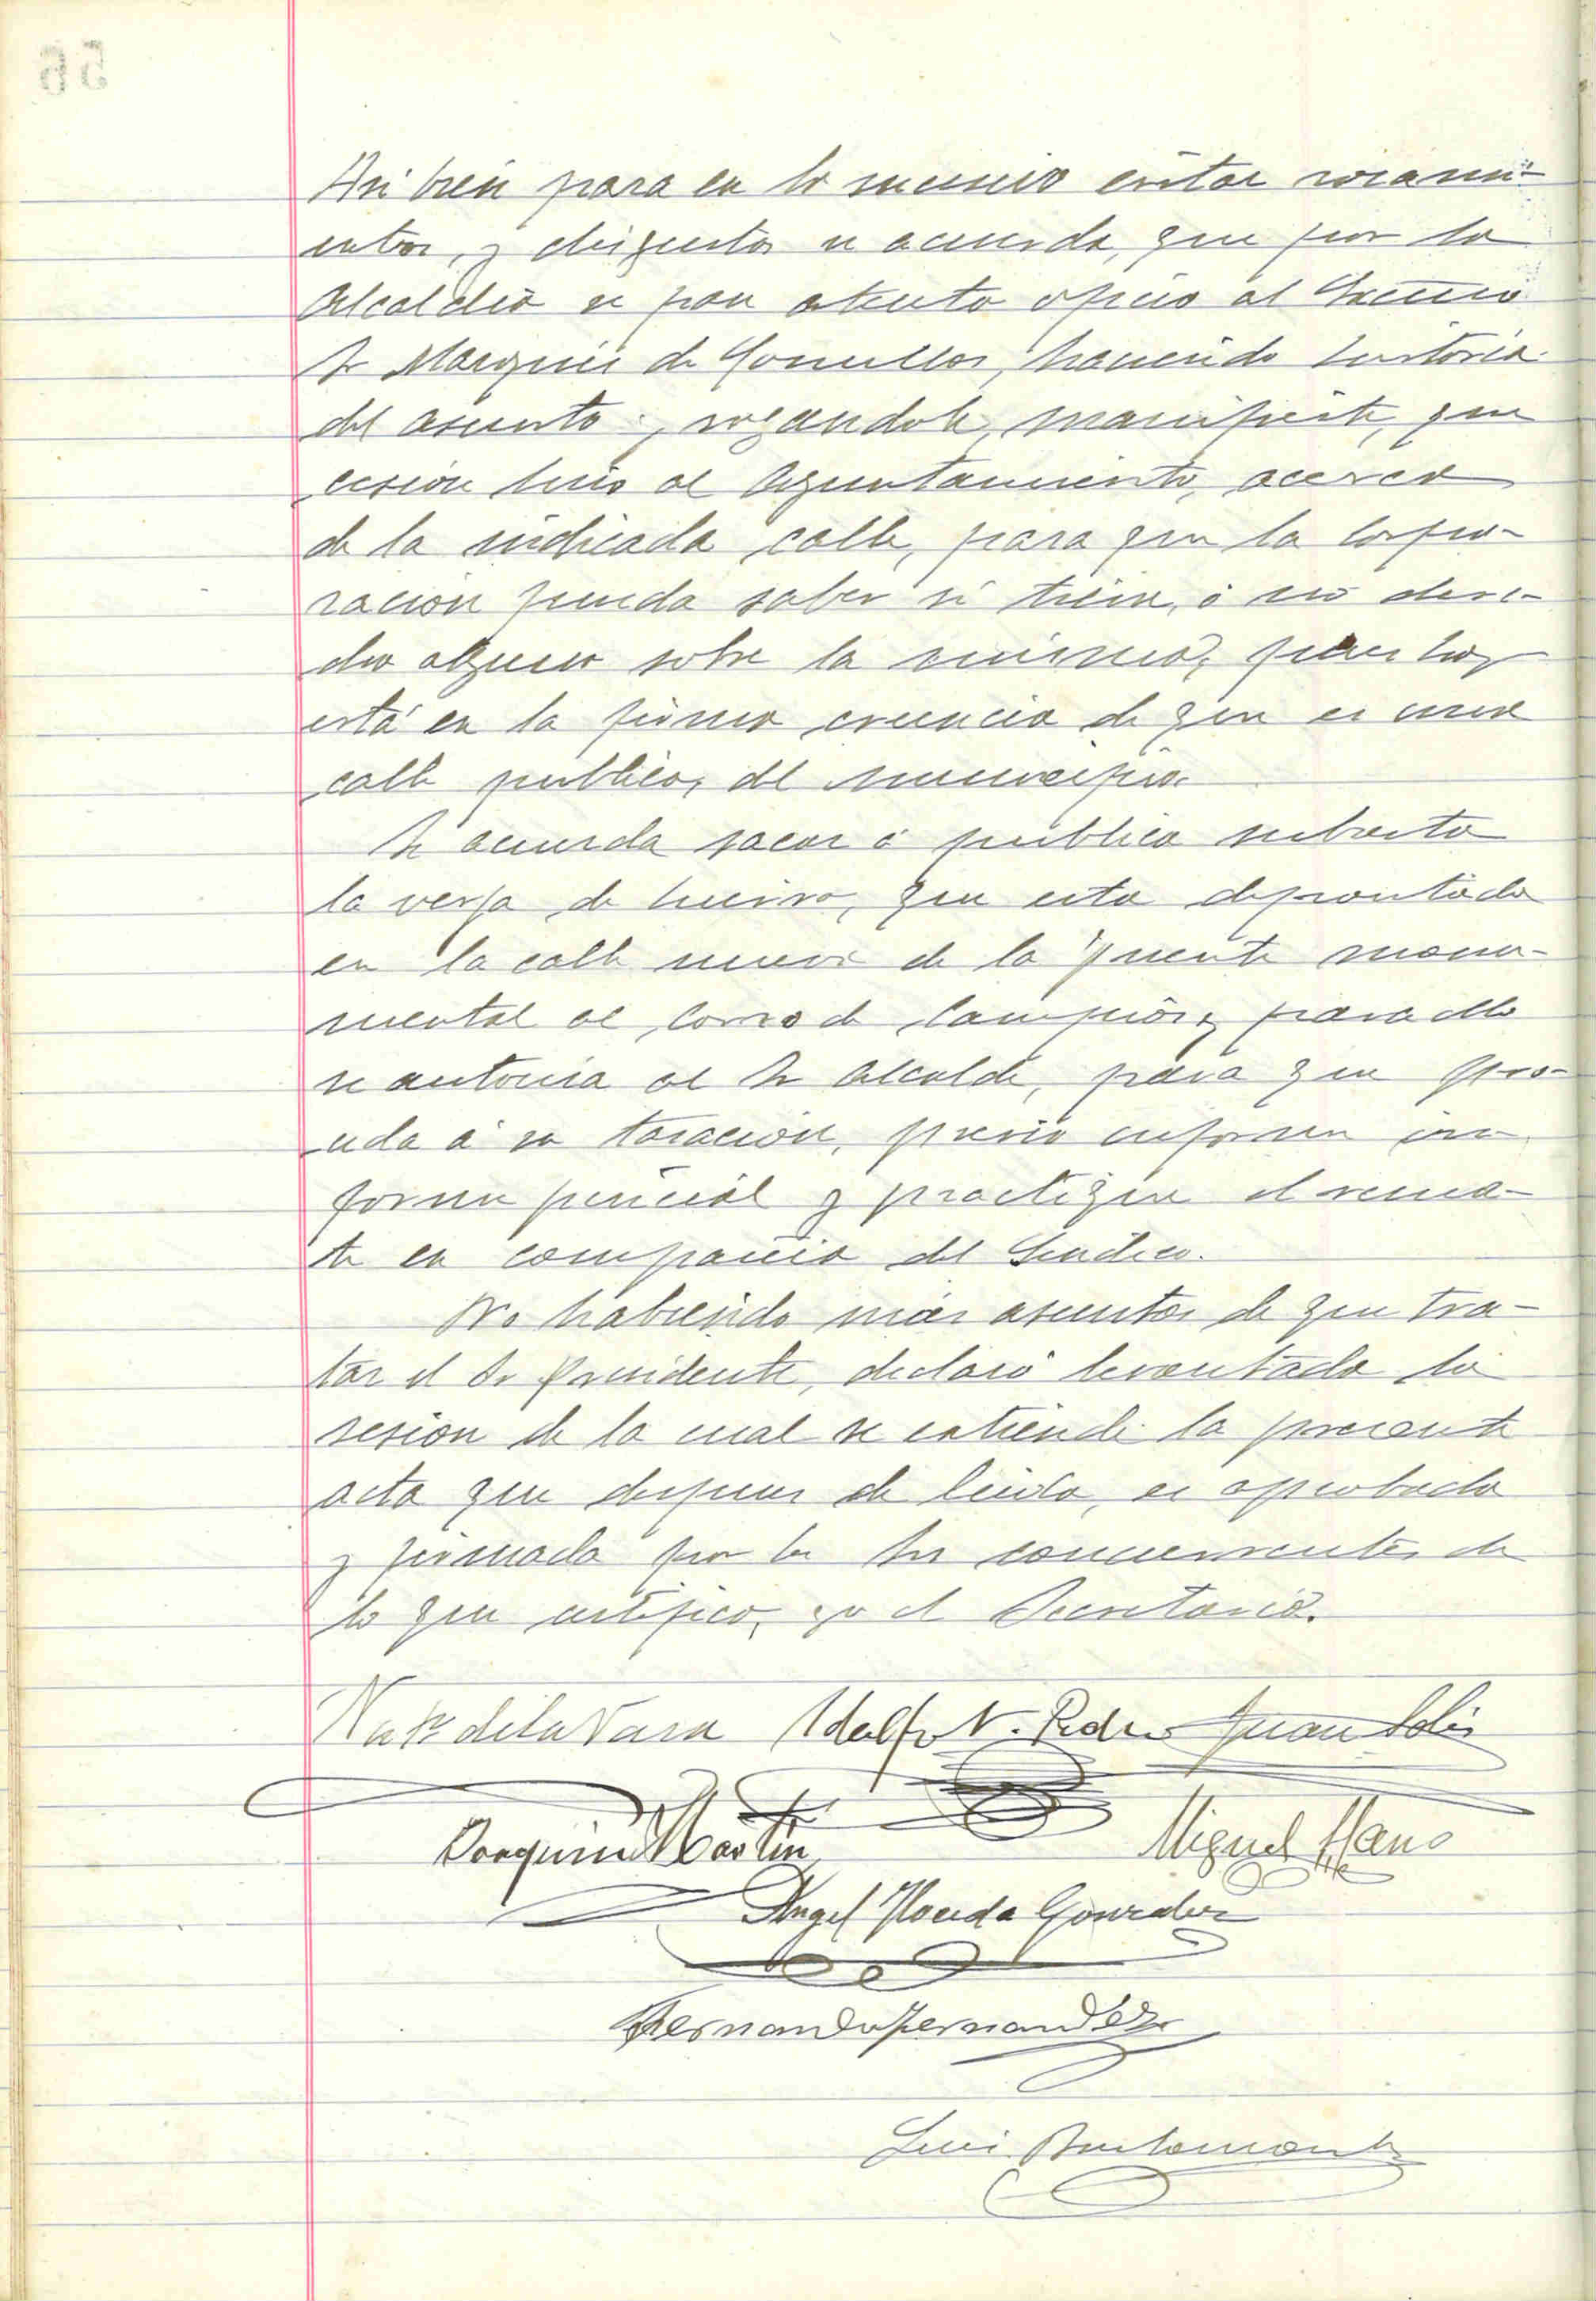 Mi bien para en lo sucesivo evitar rozami-
entos, y disgustos se acuerda, que por la
Alcaldia se pase atento oficio al Excmo
Sr Marqués de Comillas, haciendo historia
del asunto, rogandole, manifieste, que
cesión hizo al Ayuntamiento, acerca
de la indicada calle, para que la Corpo-
ración pueda saber si tiene, ó no dere-
cho alguno sobre la misma, pues hoy
está en la firme creencia de que es una
calle publica, del municipio.
Se acuerda sacar á publica subasta
la verja de hierro, que esta depositada
en la calle nueva de la fuente monu-
mental al Corro de Campios, para ello
se autoriza al Sr Alcalde, para que pro-
ceda á su tasación, previo informe en
forma pericial y practique el rema-
te en compañia del Sindico.
No habiendo más asuntos de que tra-
tar el Sr Presidente, declaró levantada la
sesion de la cual se extiende la presente
acta que despues de leida, es aprobada
y firmada por los Sres concurrentes de
lo que certifico, yo el Secretario.
de la Vara Adolfo V. Pedro Juan Solis
Joaquin Martin Miguel Hano
Angel Pomeda Gonzalez
Fernando Fernandez
Luis Bustamante